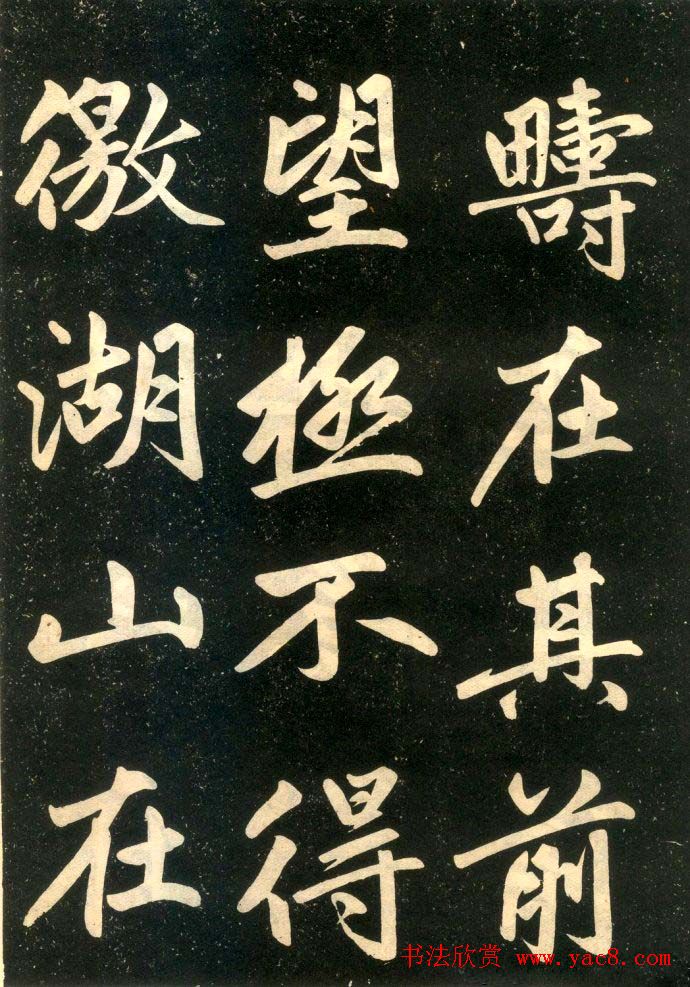 疇在其前
望極不得
儌湖山在
书法欣赏 www.yac8.com